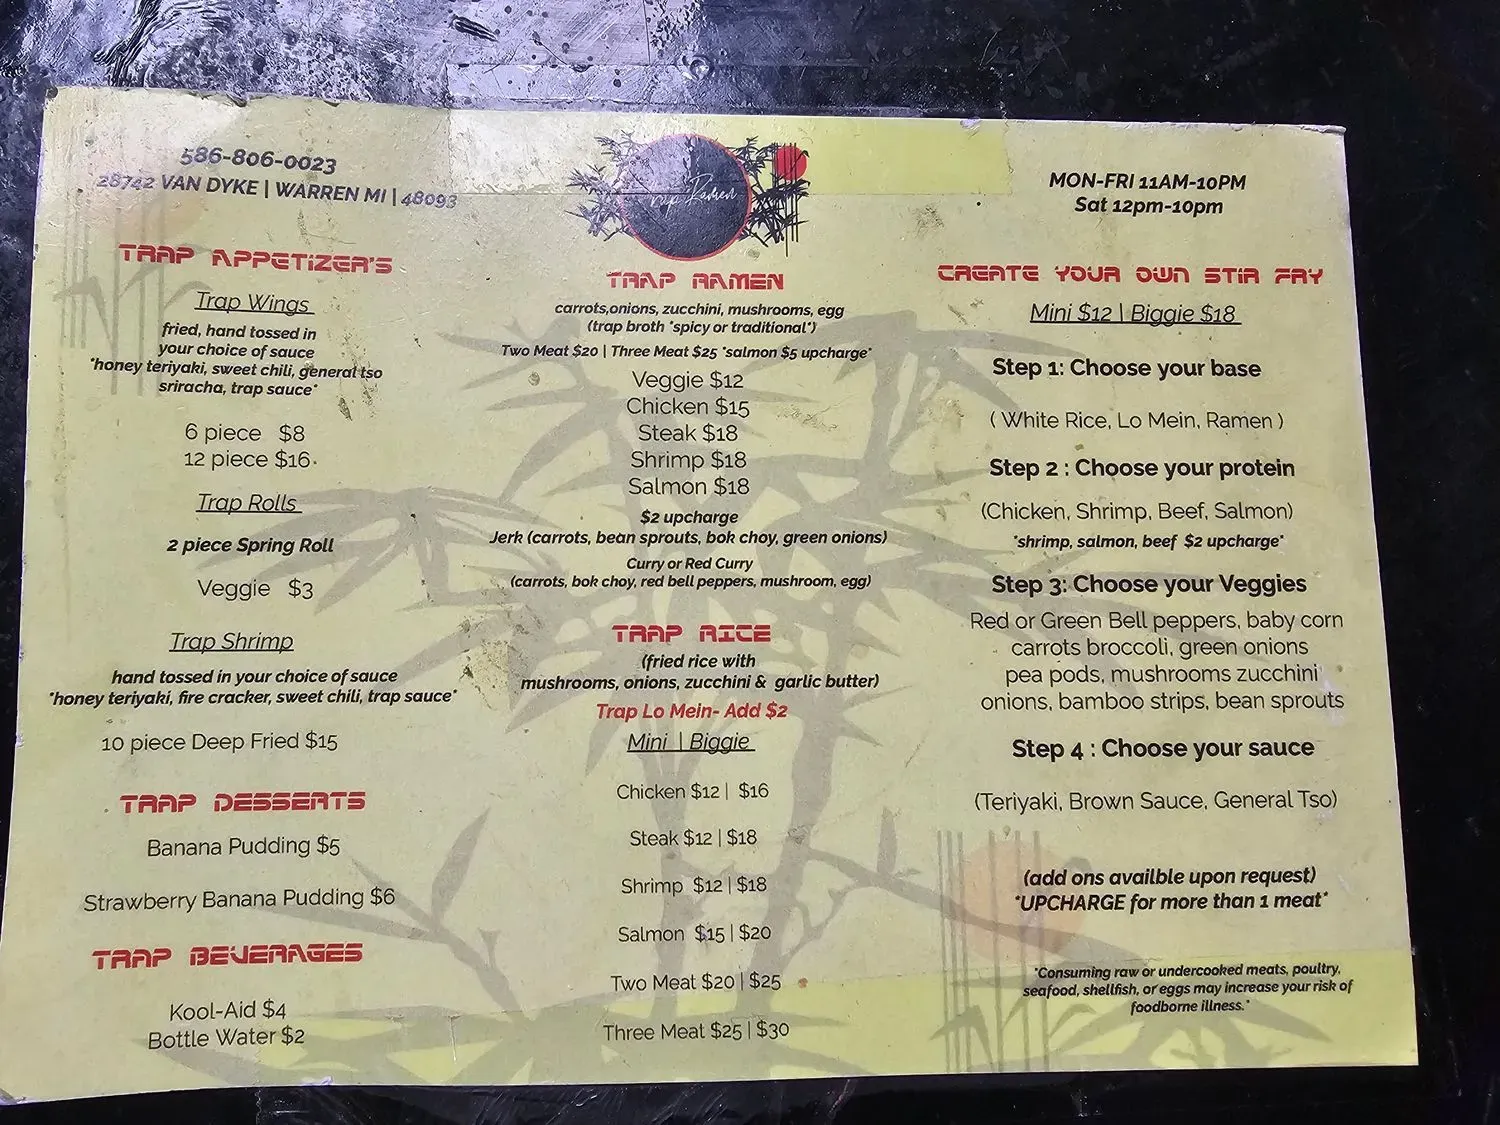 586-806-0023
28742 VAN DYKE | WARREN MI | 48093
TRAP APPETIZER'S
Trap Wings
fried, hand tossed in
your choice of sauce
*honey teriyaki, sweet chili, general tso
sriracha, trap sauce*
6 piece $8
12 piece $16
Trap Rolls
2 piece Spring Roll
Veggie $3
Trap Shrimp
hand tossed in your choice of sauce
*honey teriyaki, fire cracker, sweet chili, trap sauce*
10 piece Deep Fried $15
TRAP DESSERTS
Banana Pudding $5
Strawberry Banana Pudding $6
TRAP BEVERAGES
Kool-Aid $4
Bottle Water $2
Trap Ramen
TRAP RAMEN
carrots,onions, zucchini, mushrooms, egg
(trap broth *spicy or traditional*)
Two Meat $20 | Three Meat $25 *salmon $5 upcharge*
Veggie $12
Chicken $15
Steak $18
Shrimp $18
Salmon $18
$2 upcharge
Jerk (carrots, bean sprouts, bok choy, green onions)
Curry or Red Curry
(carrots, bok choy, red bell peppers, mushroom, egg)
TRAP RICE
(fried rice with
mushrooms, onions, zucchini & garlic butter)
Trap Lo Mein- Add $2
Mini | Biggie
Chicken $12 | $16
Steak $12 | $18
Shrimp $12 | $18
Salmon $15 | $20
Two Meat $20 | $25
Three Meat $25 | $30
MON-FRI 11AM-10PM
Sat 12pm-10pm
CREATE YOUR OWN STIR FRY
Mini $12 | Biggie $18
Step 1: Choose your base
( White Rice, Lo Mein, Ramen )
Step 2 : Choose your protein
(Chicken, Shrimp, Beef, Salmon)
*shrimp, salmon, beef $2 upcharge*
Step 3: Choose your Veggies
Red or Green Bell peppers, baby corn
carrots broccoli, green onions
pea pods, mushrooms zucchini
onions, bamboo strips, bean sprouts
Step 4 : Choose your sauce
(Teriyaki, Brown Sauce, General Tso)
(add ons availble upon request)
*UPCHARGE for more than 1 meat*
*Consuming raw or undercooked meats, poultry,
seafood, shellfish, or eggs may increase your risk of
foodborne illness.*